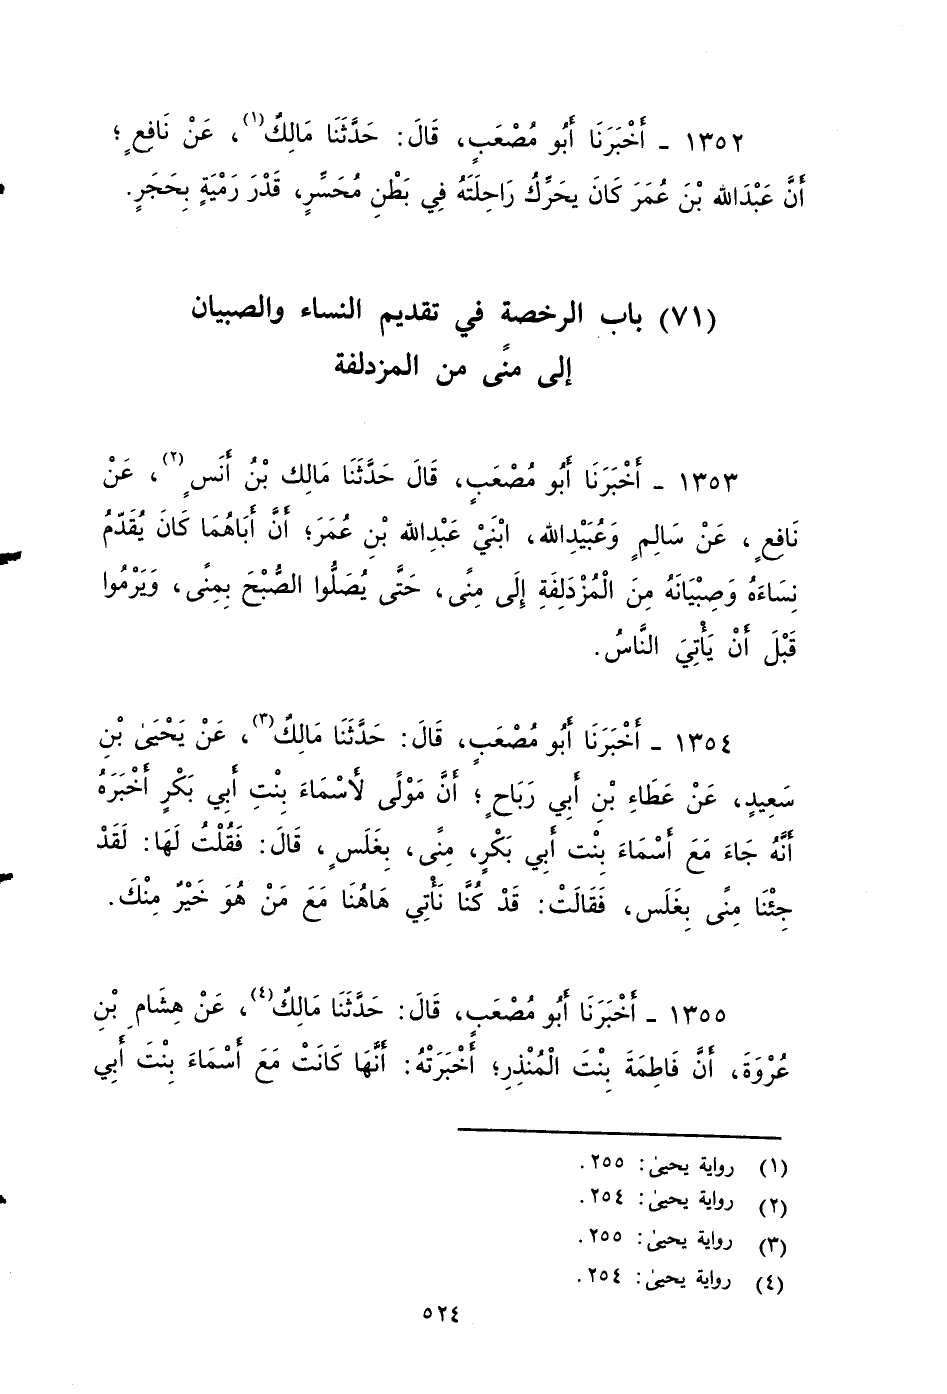 ١٣٥٢ - أَخْبَرَنَا أَبُو مُصْعَبٍ، قَالَ: حَدَّثَنَا مَالِكٌ(١)، عَنْ نَافِعٍ؛
أَنَّ عَبْدَالله بْنَ عُمَرَ كَانَ يحَرِّكُ رَاحِلَتَهُ فِي بَطْنِ مُحَسِّرٍ، قَدْرَ رَمْيَةٍ بِحَجَرٍ.
(٧١) باب الرخصة في تقديم النساء والصبيان
إلى منًى من المزدلفة
١٣٥٣ - أَخْبَرَنَا أَبُو مُصْعَبٍ، قَالَ حَدَّثَنَا مَالِك بْنُ أَنَسٍ(٢)، عَنْ
نَافِعٍ، عَنْ سَالِمٍ وَعُبَيْدِالله، ابْنَيْ عَبْدِالله بْنِ عُمَرَ؛ أَنَّ أَبَاهُمَا كَانَ يُقَدِّمُ
نِسَاءَهُ وَصِبْيَانَهُ مِنَ الْمُزْدَلِفَةِ إِلَى مِنًى، حَتَّى يُصَلُّوا الصُّبْحَ بِمِنًى، وَيَرْمُوا
قَبْلَ أَنْ يَأْتِيَ النَّاسُ.
١٣٥٤ - أَخْبَرَنَا أَبُو مُصْعَبٍ، قَالَ: حَدَّثَنَا مَالِكٌ(٣)، عَنْ يَحْيَىٰ بْنِ
سَعِيدٍ، عَنْ عَطَاءِ بْنِ أَبِي رَبَاحٍ؛ أَنَّ مَوْلًى لأَسْمَاءَ بِنْتِ أَبِي بَكْرٍ أَخْبَرَهُ
أَنَّهُ جَاءَ مَعَ أَسْمَاءَ بِنْت أَبِي بَكْرٍ، مِنًى، بِغَلَسٍ، قَالَ: فَقُلْتُ لَهَا: لَقَدْ
جِئْنَا مِنًى بِغَلَس، فَقَالَتْ: قَدْ كُنَّا نَأْتِي هَاهُنَا مَعَ مَنْ هُوَ خَيْرٌ مِنْكَ.
١٣٥٥ - أَخْبَرَنَا أَبُو مُصْعَبٍ، قَالَ: حَدَّثَنَا مَالِكٌ(٤)، عَنْ هِشَامِ بْنِ
عُرْوَةَ، أَنَّ فَاطِمَةَ بِنْتَ الْمُنْذِرِ؛ أَخْبَرَتْهُ: أَنَّهَا كَانَتْ مَعَ أَسْمَاءَ بِنْتَ أَبِي
(١) رواية يحيىٰ: ٢٥٥.
(٢) رواية يحيىٰ: ٢٥٤.
(٣) رواية يحيىٰ: ٢٥٥.
(٤) رواية يحيىٰ: ٢٥٤.
٥٢٤